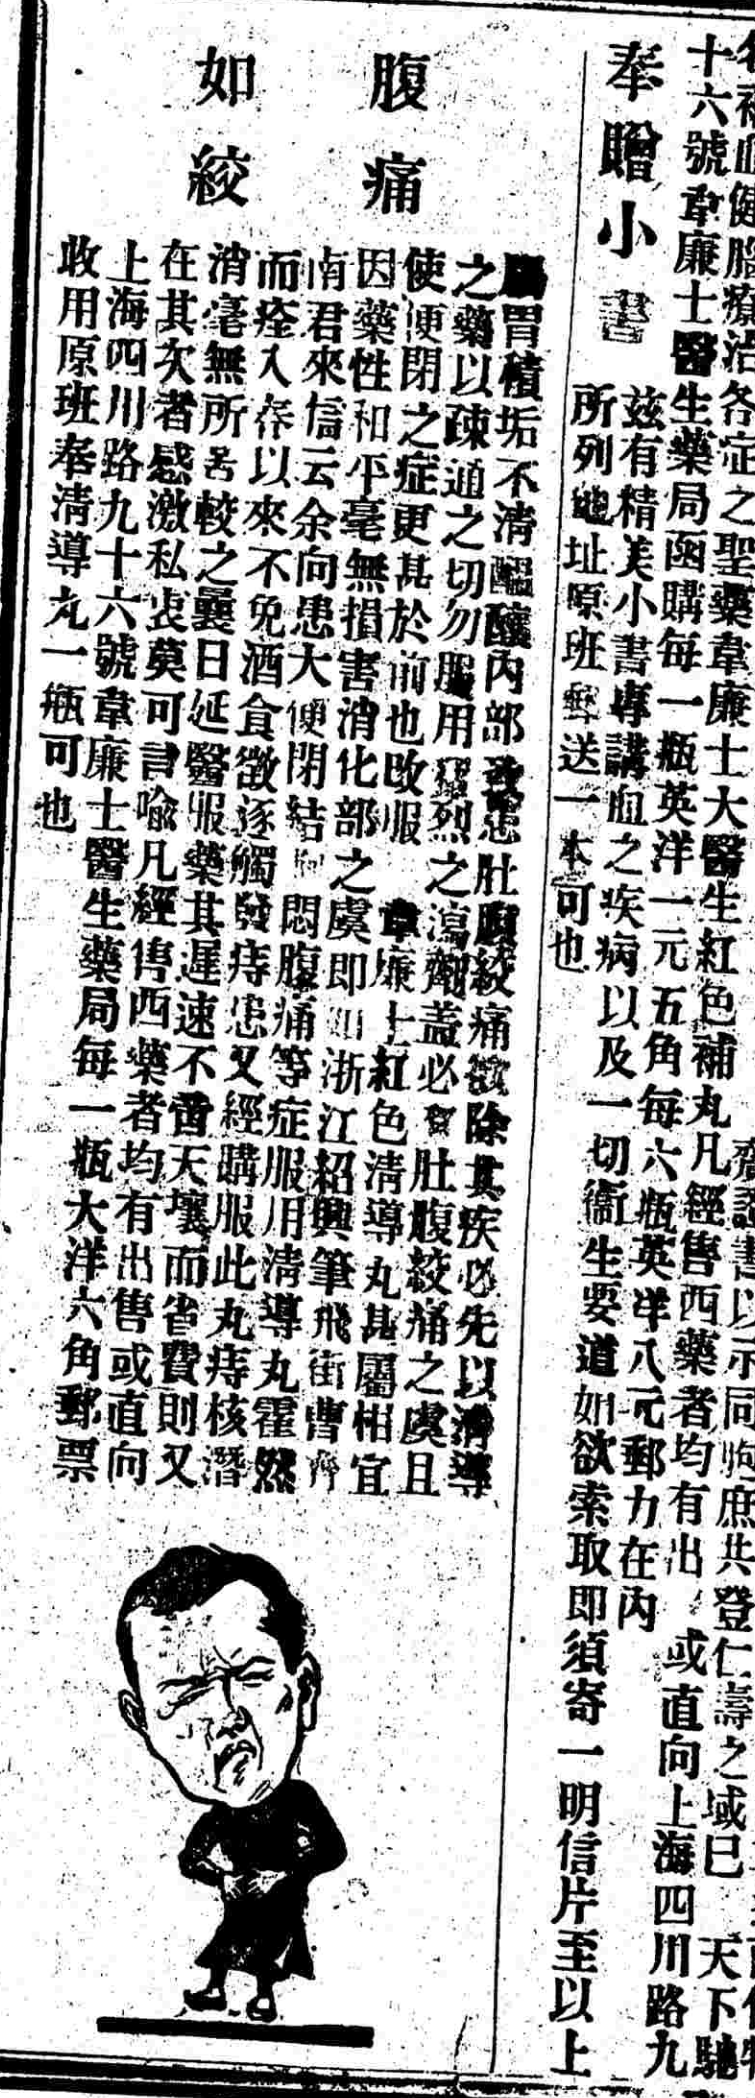 補血健腦療治各症之聖藥韋廉士大醫生紅色補丸
書以示同胞庶共登仁壽之域巳
天下馳
十六號韋廉士醫生藥局函購每一瓶英洋一元五角每六瓶英洋八元郵力在內
凡經售西藥者均有出 或直向上海四川路九
奉贈小書
茲有精美小書專講血之疾病以及一切衞生要道如欲索取即須寄一明信片至以上
所列地址原班郵送一本可也
腹痛
如絞
腸胃積垢不清醞釀內部致患肚腹絞痛欲除其疾必先以清導
之藥以疎通之切勿服用猛烈之瀉劑蓋必致肚腹絞痛之虞且
使便閉之症更甚於前也改服 韋廉士紅色清導丸甚屬相宜
因藥性和平毫無損害消化部之虞即如浙江紹興筆飛街曹齊
南君來信云余向患大便閉結 悶腹痛等症服用清導丸霍然
而痊入春以來不免酒食徵逐觸發痔患又經購服此丸痔核潛
消毫無所苦較之曩日延醫服藥其遲速不啻天壤而省費則又
在其次者感激私衷莫可言喻凡經售西藥者均有出售或直向
上海四川路九十六號韋廉士醫生藥局每一瓶大洋六角郵票
收用原班奉清導丸一瓶可也